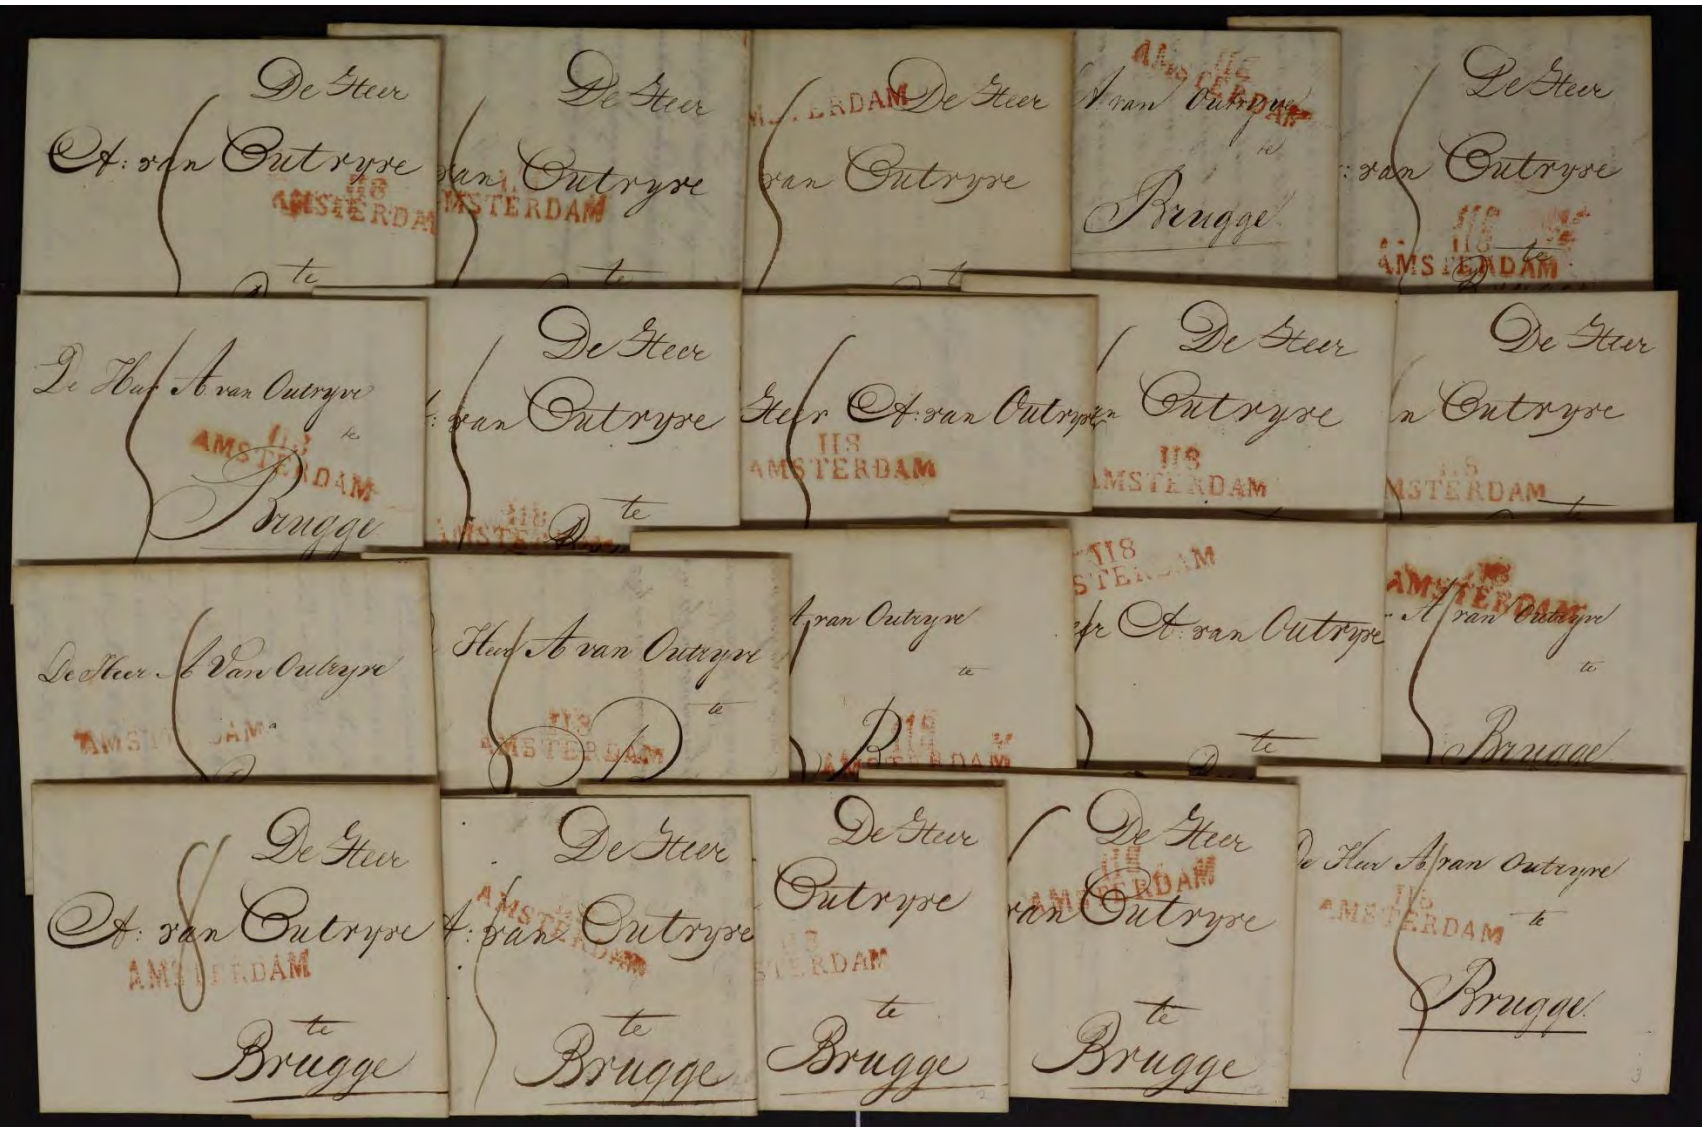 De Heer
A: van Outryve
118
AMSTERDAM
te
De Heer
van Outryve
MSTERDAM
te
De Heer
ERDAM
van Outryve
118
AMSTERDAM
A van Outryve
te
Brugge
De Heer
: van Outryve
118
118
AMSTERDAM
te
De Heer A van Outryve
te
118
AMSTERDAM
Brugge
De Heer
: van Outryve
118
te
Heer A: van Outryve
118
AMSTERDAM
De Heer
Outryve
118
MSTERDAM
De Heer
n Outryve
118
MSTERDAM
te
De Heer A Van Outryve
AMST DAM
Heer A van Outryve
te
118
AMSTERDAM
A van Outryve
te
118
AMSTERDAM
118
STERDAM
A: van Outryve
te
118
AMSTERDAM
A van Outryve
te
Brugge
De Heer
A: van Outryve
AMSTERDAM
te
Brugge
De Heer
A: van Outryve
AMSTERDAM
te
Brugge
De Heer
Outryve
118
STERDAM
te
Brugge
De Heer
118
AMSTERDAM
van Outryve
te
Brugge
De Heer A van Outryve
118
AMSTERDAM
te
Brugge
3